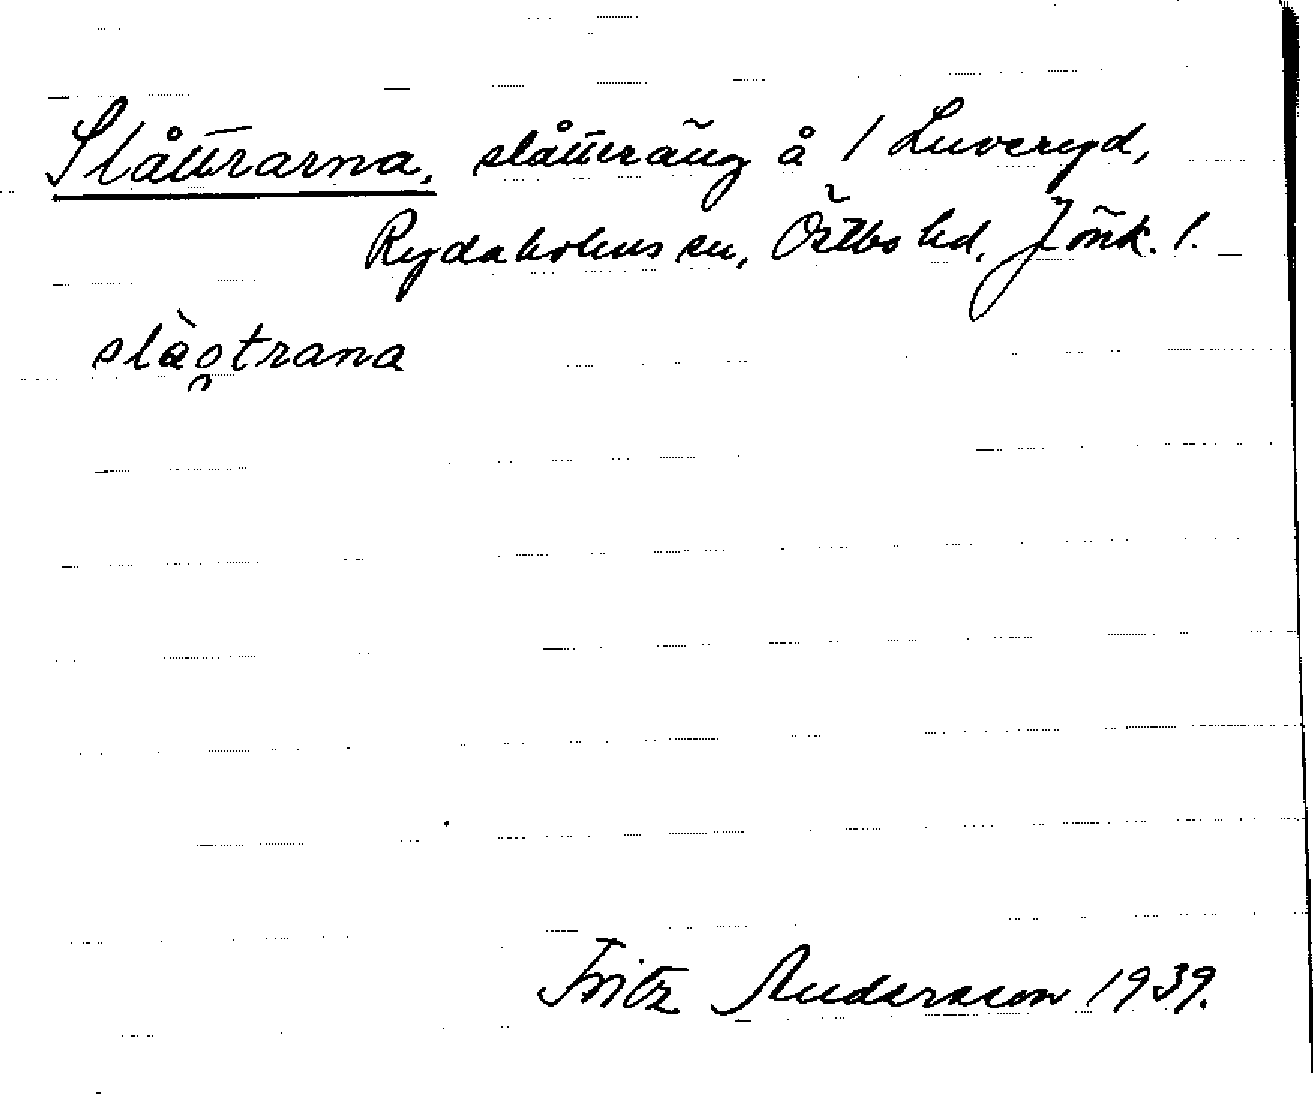 Slåttrarna, slåtteräng å 1 Luveryd,
Rydaholms sn, Östbo hd, Jönk. l.
slåo̯trana
Fritz Andersson 1939.